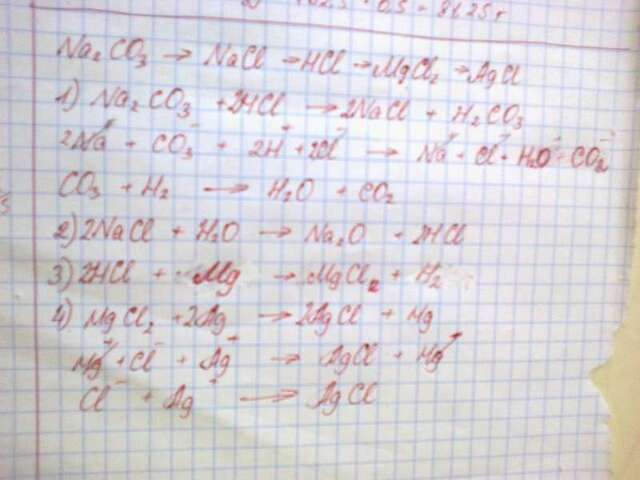 = 81,25 г
Na₂CO₃ → NaCl → HCl → MgCl₂ → AgCl
1) Na₂CO₃ + 2HCl → 2NaCl + H₂CO₃
2Na⁺ + CO₃⁻ + 2H⁺ + 2Cl⁻ → Na⁺ + Cl⁻ + H₂O + CO₂
CO₃ + H₂ → H₂O + CO₂
2) 2NaCl + H₂O → Na₂O + 2HCl
3) 2HCl + Mg → MgCl₂ + H₂
4) MgCl₂ + 2Ag → 2AgCl + Mg
Mg⁺ + Cl⁻ + Ag⁺ → AgCl + Mg⁺
Cl⁻ + Ag⁺ → AgCl